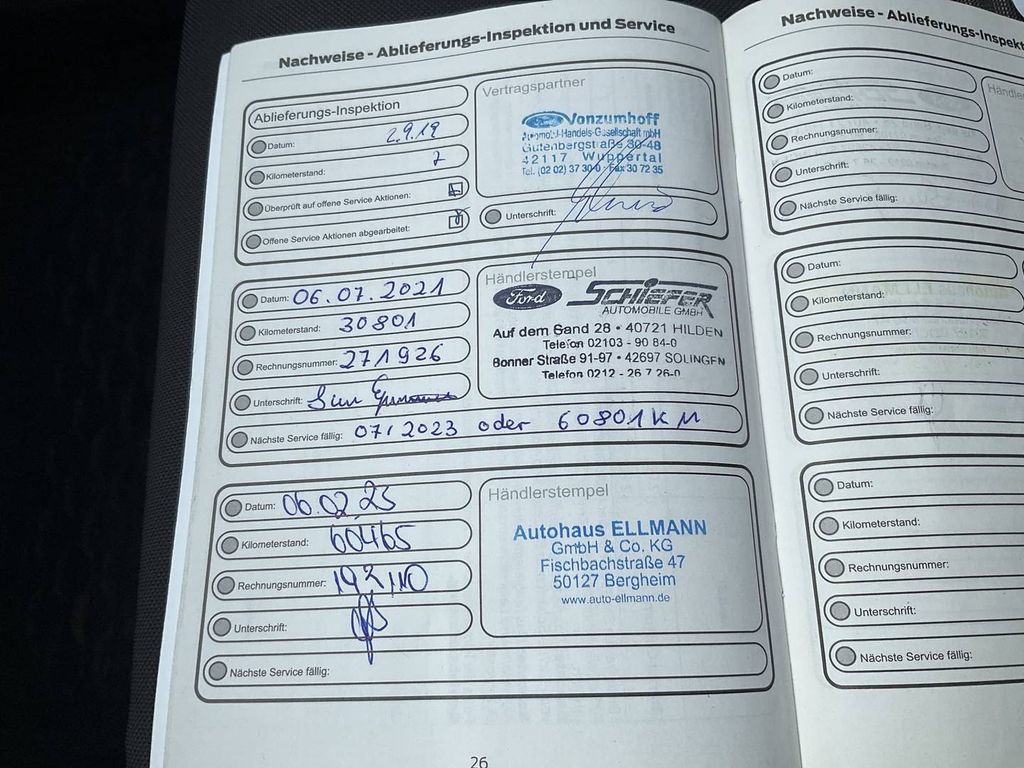 Nachweise - Ablieferungs-Inspektion und Service
Ablieferungs-Inspektion
Datum: 2.9.19
Kilometerstand: 7
Überprüft auf offene Service Aktionen:
Offene Service Aktionen abgearbeitet:
Vertragspartner
Ford Vonzumhoff
Automobil-Handels-Gesellschaft mbH
Gutenbergstraße 30-48
42117 Wuppertal
Tel. (02 02) 37 30-0 · Fax 30 72 35
Unterschrift:
Datum: 06.07.2021
Kilometerstand: 30801
Rechnungsnummer: 271926
Unterschrift:
Nächste Service fällig: 07/2023 oder 60801KM
Händlerstempel
Ford SCHIEFER
AUTOMOBILE GMBH
Auf dem Sand 28 • 40721 HILDEN
Telefon 02103 - 90 84-0
Bonner Straße 91-97 • 42697 SOLINGEN
Telefon 0212 - 26 7 26-0
Datum:
Kilometerstand: 60465
Rechnungsnummer:
Unterschrift:
Nächste Service fällig:
Händlerstempel
Autohaus ELLMANN
GmbH & Co. KG
Fischbachstraße 47
50127 Bergheim
www.auto-ellmann.de
26
Nachweise - Ablieferungs-Inspekt
Datum:
Kilometerstand:
Rechnungsnummer:
Unterschrift:
Nächste Service fällig:
Händle
Datum:
Kilometerstand:
Rechnungsnummer:
Unterschrift:
Nächste Service fällig:
Datum:
Kilometerstand:
Rechnungsnummer:
Unterschrift:
Nächste Service fällig: